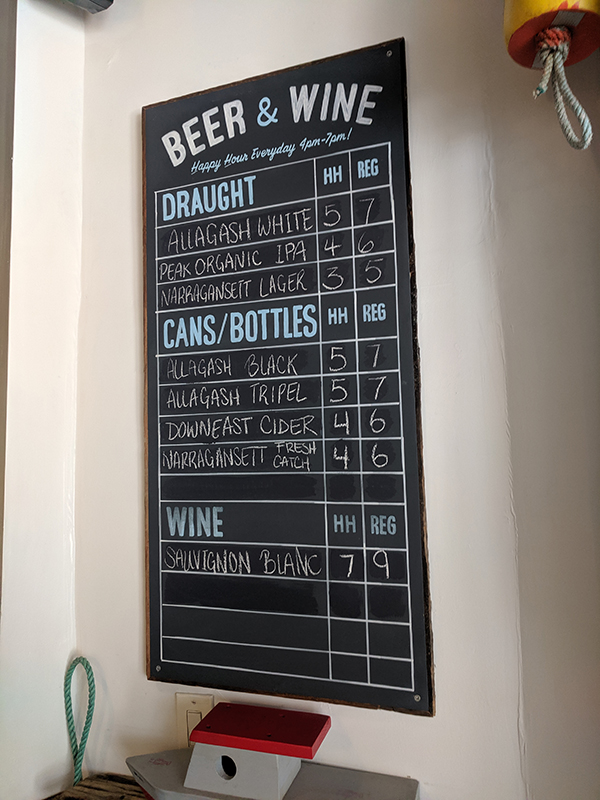 BEER & WINE
Happy Hour Everyday 4pm-7pm!
DRAUGHT HH REG
ALLAGASH WHITE 5 7
PEAK ORGANIC IPA 4 6
NARRAGANSETT LAGER 3 5
CANS/BOTTLES HH REG
ALLAGASH BLACK 5 7
ALLAGASH TRIPEL 5 7
DOWNEAST CIDER 4 6
NARRAGANSETT FRESH CATCH 4 6
WINE HH REG
SAUVIGNON BLANC 7 9